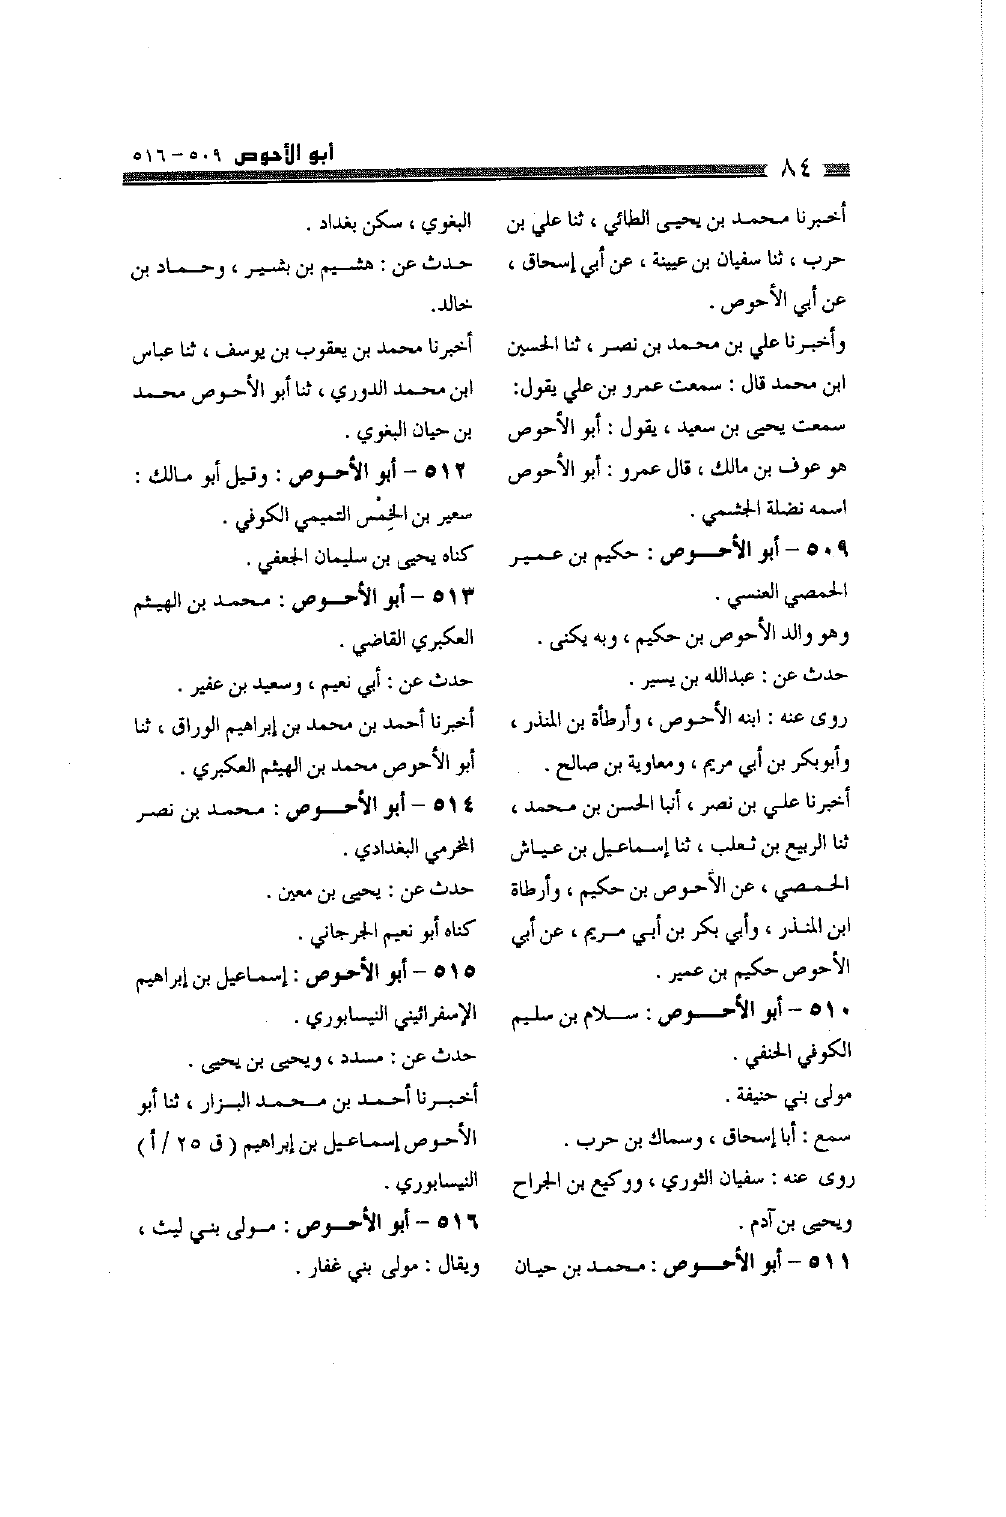 أبو الأحوص ٥٠٩-٥١٦
٨٤
أخبرنا محمد بن يحيى الطائي ، ثنا علي بن
حرب ، ثنا سفيان بن عيينة ، عن أبي إسحاق ،
عن أبي الأحوص .
وأخبرنا علي بن محمد بن نصر ، ثنا الحسين
ابن محمد قال : سمعت عمرو بن علي يقول:
سمعت يحيى بن سعيد ، يقول : أبو الأحوص
هو عوف بن مالك ، قال عمرو : أبو الأحوص
اسمه نضلة الجشمي .
٥٠٩ - أبو الأحوص : حكيم بن عمير
الحمصي العنسي .
وهو والد الأحوص بن حكيم ، وبه يكنى .
حدث عن : عبدالله بن يسير .
روى عنه : ابنه الأحوص ، وأرطأة بن المنذر ،
وأبوبكر بن أبي مريم ، ومعاوية بن صالح .
أخبرنا علي بن نصر ، أنبا الحسن بن محمد ،
ثنا الربيع بن ثعلب ، ثنا إسماعيل بن عياش
الحمصي ، عن الأحوص بن حكيم ، وأرطاة
ابن المنذر ، وأبي بكر بن أبي مريم ، عن أبي
الأحوص حكيم بن عمير .
٥١٠ - أبو الأحوص : سلام بن سليم
الكوفي الحنفي .
مولى بني حنيفة .
سمع : أبا إسحاق ، وسماك بن حرب .
روى عنه : سفيان الثوري ، ووكيع بن الجراح
ويحيى بن آدم .
٥١١ - أبو الأحوص : محمد بن حيان
البغوي ، سكن بغداد .
حدث عن : هشيم بن بشير ، وحماد بن
خالد.
أخبرنا محمد بن يعقوب بن يوسف ، ثنا عباس
ابن محمد الدوري ، ثنا أبو الأحوص محمد
بن حيان البغوي .
٥١٢ - أبو الأحوص : وقيل أبو مالك :
سعير بن الخِمْس التميمي الكوفي .
كناه يحيى بن سليمان الجعفي .
٥١٣ - أبو الأحوص : محمد بن الهيثم
العكبري القاضي .
حدث عن : أبي نعيم ، وسعيد بن عفير .
أخبرنا أحمد بن محمد بن إبراهيم الوراق ، ثنا
أبو الأحوص محمد بن الهيثم العكبري .
٥١٤ - أبو الأحوص : محمد بن نصر
المخرمي البغدادي .
حدث عن : يحيى بن معين .
كناه أبو نعيم الجرجاني .
٥١٥ - أبو الأحوص : إسماعيل بن إبراهيم
الإسفرائيني النيسابوري .
حدث عن : مسدد ، ويحيى بن يحيى .
أخبرنا أحمد بن محمد البزار ، ثنا أبو
الأحوص إسماعيل بن إبراهيم ( ق ٢٥ / أ )
النيسابوري .
٥١٦ - أبو الأحوص : مولى بني ليث ،
ويقال : مولى بني غفار .